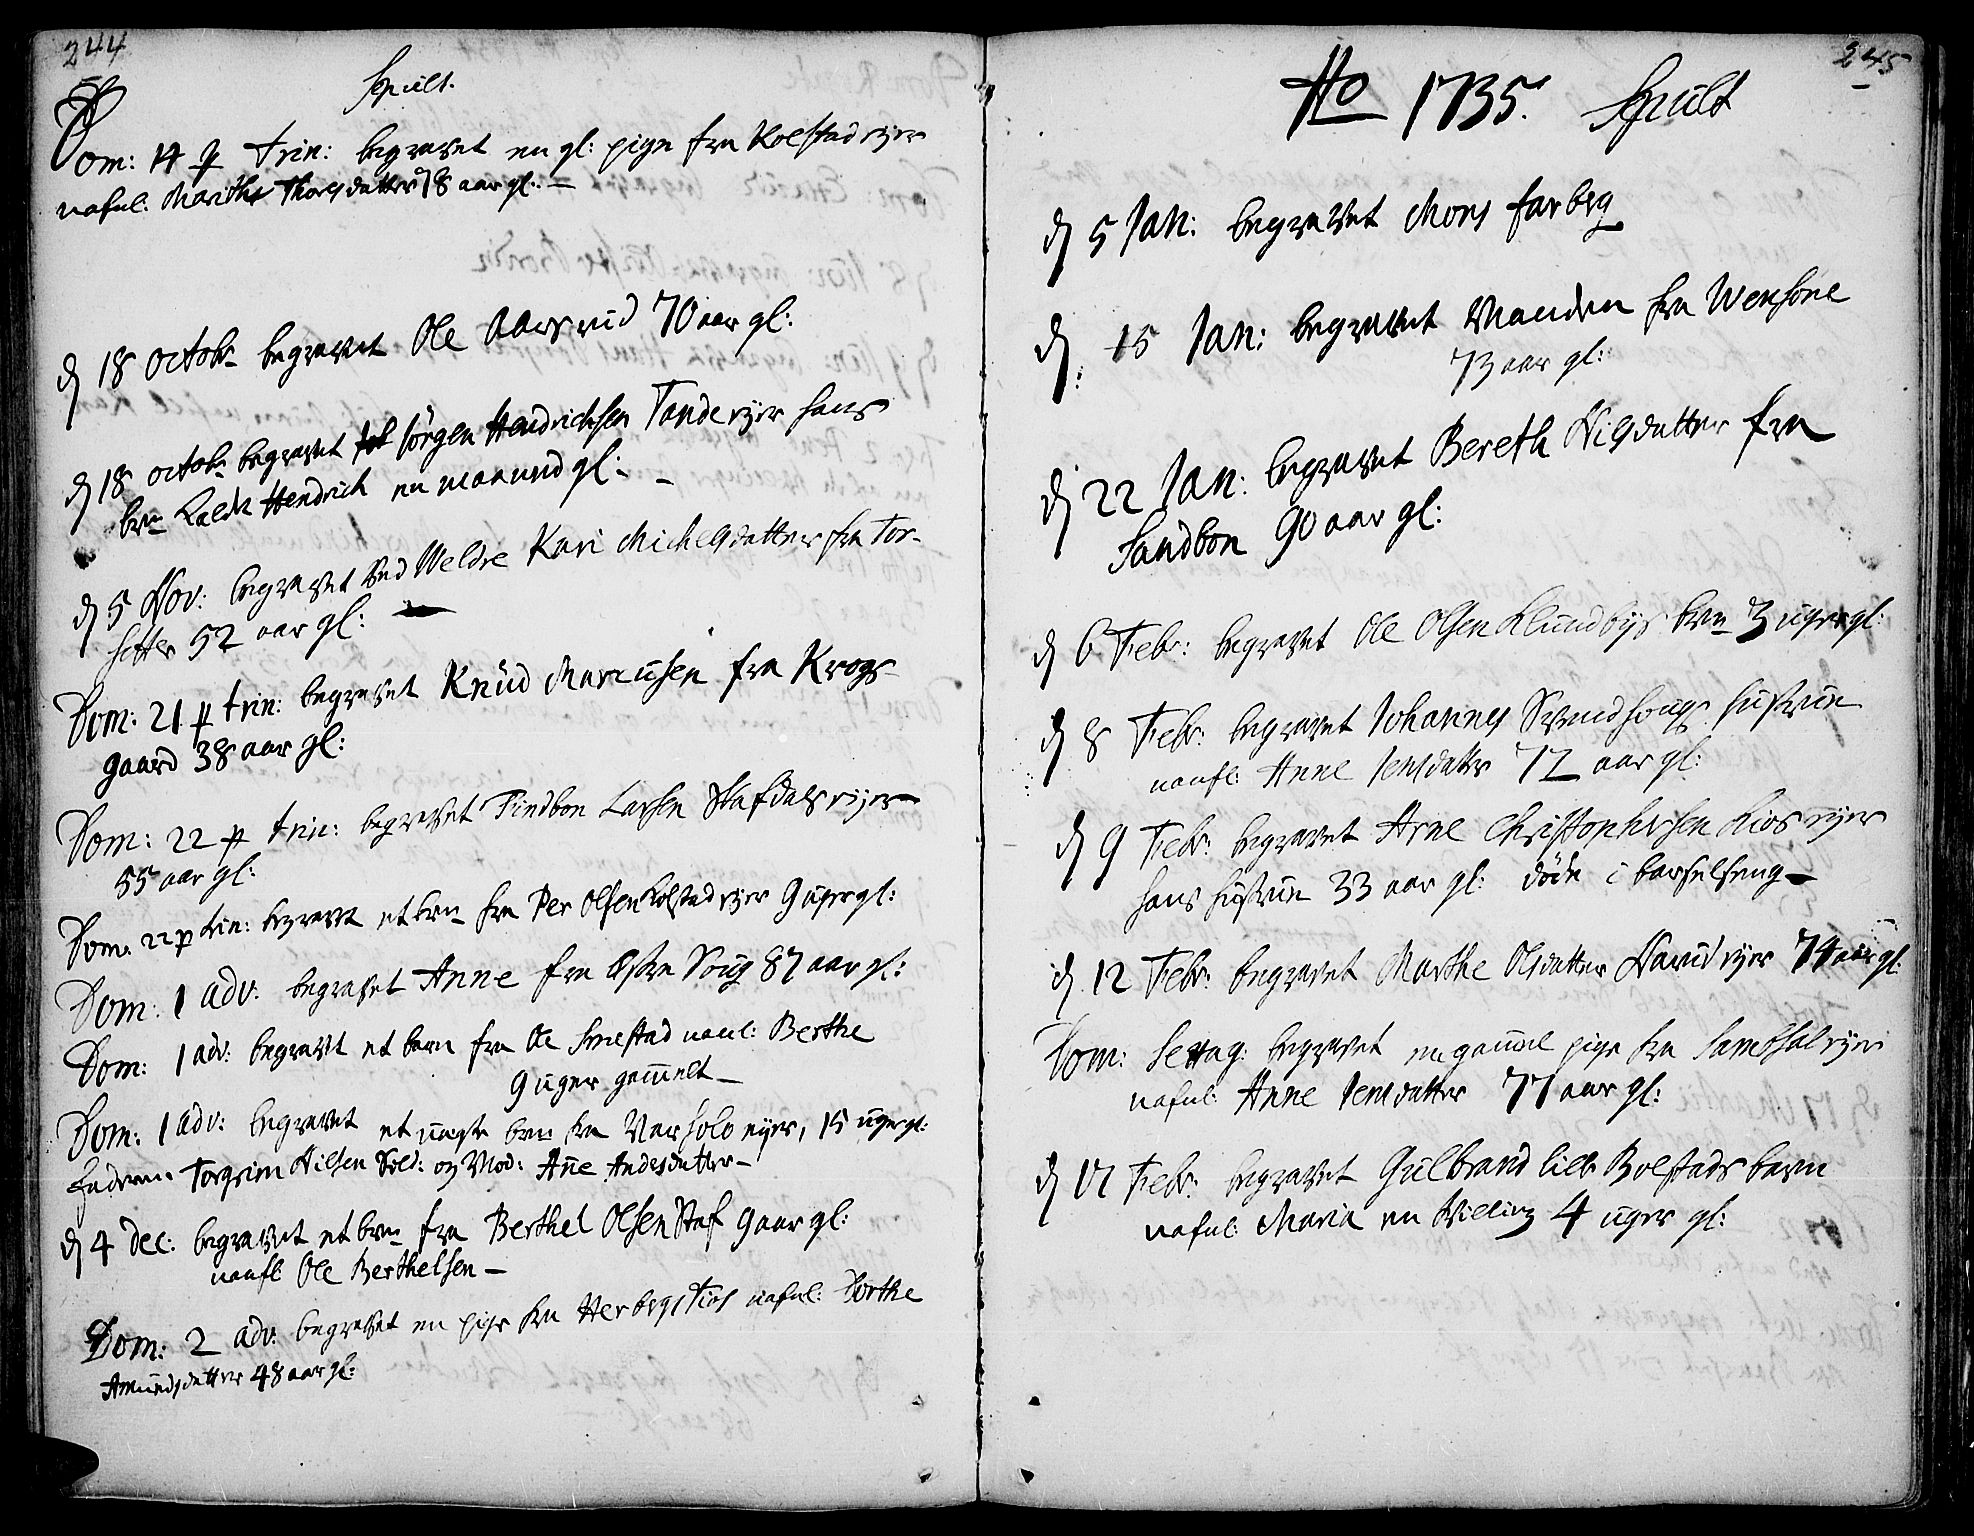 244
Sepult.
Dom: 14 p trin: begravet en gl: pige fra Kolstad ejer
nafnl: Marthe Thorsdatter 78 aar gl: —
d 18 octobr begravet Ole Aarsrud 70 aar gl:
d 18 octobr begravet Jörgen Hendrichsen Tande ejer hans
brn kaldt Hendrich en maaned gl: —
d 5 Nov: begravet ved Weldre Kari Michelsdatter fra Tor-
setter 52 aar gl:
Dom: 21 p trin: begravet Knud Marcusen fra Krogs-
gaard 38 aar gl:
Dom: 22 p trin: begravet Findbon Larsen Stafdals ejer
55 aar gl:
Dom. 22 p trin: begravet et brn fra Per Olsen Kolstad ejer 9 uger gl:
Dom: 1 adv: begravet Anne fra 87 aar gl:
Dom: 1 adv: begravet et barn fra Ole Smestad naul: Berthe
9 uger gammelt —
Dom: 1 adv: begravet et uægte brn fra Versolo ejer, 15 uger gl:
Faderen Torgrim Nilsen Sold: og Mod: Anne Andersdatter —
d 4 Dec: begravet et brn fra Berthel Olsen Staf 9 aar gl:
naufl Ole Berthelsen —
Dom: 2 adv: begravet en pige fra Herbergs nafnl: Dorthe
Amundsdatter 48 aar gl:
245
Ao 1735. Sepult
d 5 Jan: begravet Mons farberg
d. 15 Jan: begravet Manden fra Wensöne
73 aar gl:
d 22 Jan: begravet Bereth Nilsdatter fra
Sandbon 90 aar gl:
d 6 Febr: begravet Ole Olsen Klundbys brn 3 uger gl:
d 8 Febr: begravet Johannes Svendhougs hustrue
naufl: Anne Jensdatter 72 aar gl:
d 9 Febr: begravet Arne Christophersen Kios ejer
hans hustrue 33 aar gl: döde i barselseng —
d. 12 Febr: begravet Marthe Olsdatter Narud ejer 74 aar gl:
Dom: Septuag: begravet en gammel pige fra Samsal ejer
nafnl: Anne Jensdatter 77 aar gl:
d 17 Febr: begravet Gulbrand lille Bolstads barn
nafnl: Maria en tvilling 4 uger gl: